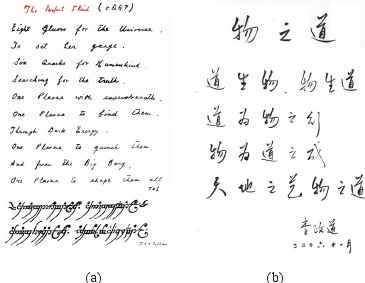 The Perfect Fluid (sQGP)
Eight Gluons for the Universe,
To set her gauge.
Six Quarks for Humankind,
Searching for the truth.
One Plasma with superstrength,
One Plasma to bind them.
Through Dark Energy,
One Plasma to quench them,
And from the Big Bang,
One Plasma to shape them all
(a)
物之道
道生物,物生道
道为物之形
物为道之成
天地之艺物之道
李政道
二〇〇六年十一月
(b)